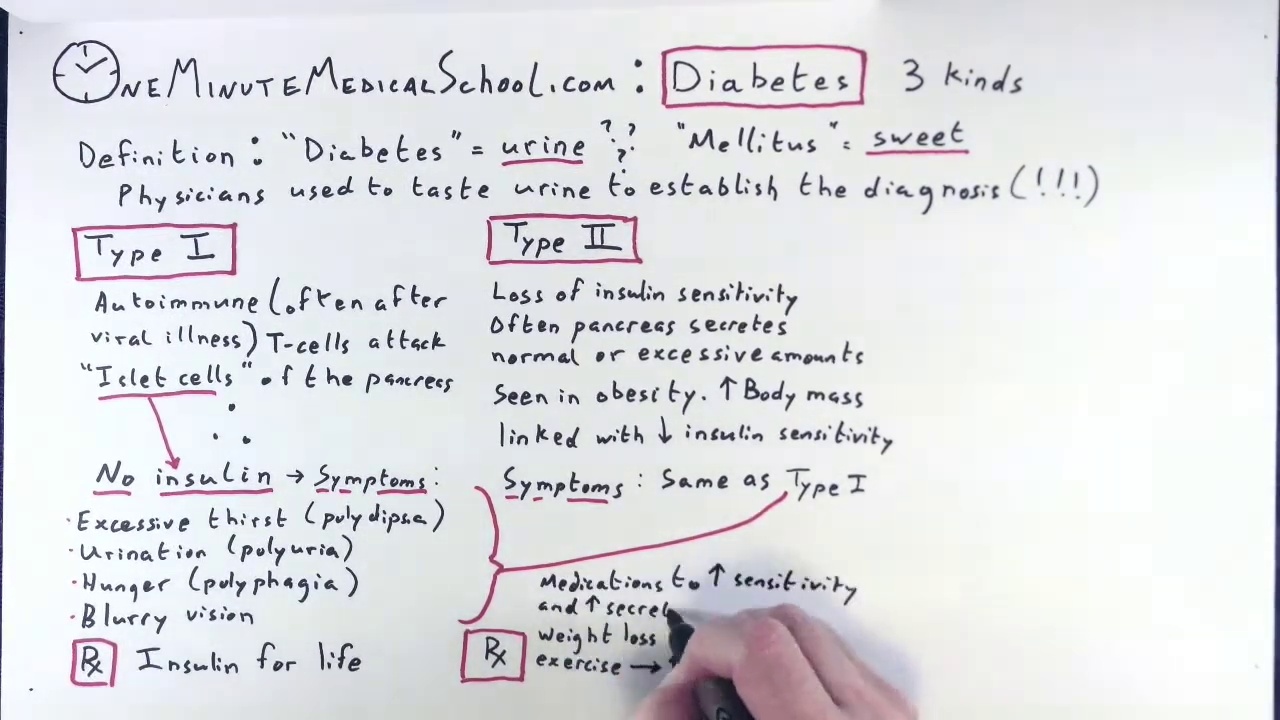 ONEMINUTEMEDICALSCHOOL.COM : Diabetes 3 kinds
Definition : "Diabetes" = urine ? ? ? "Mellitus" = sweet
Physicians used to taste urine to establish the diagnosis (!!!)
Type I
Autoimmune (often after
viral illness) T-cells attack
"Islet cells" of the pancreas
No insulin → Symptoms :
· Excessive thirst (polydipsia)
· Urination (polyuria)
· Hunger (polyphagia)
· Blurry vision
Rx Insulin for life
Type II
Loss of insulin sensitivity
Often pancreas secretes
normal or excessive amounts
Seen in obesity. ↑ Body mass
linked with ↓ insulin sensitivity
Symptoms : Same as Type I
Rx
Medications to ↑ sensitivity
and ↑ secret
weight loss
exercise →